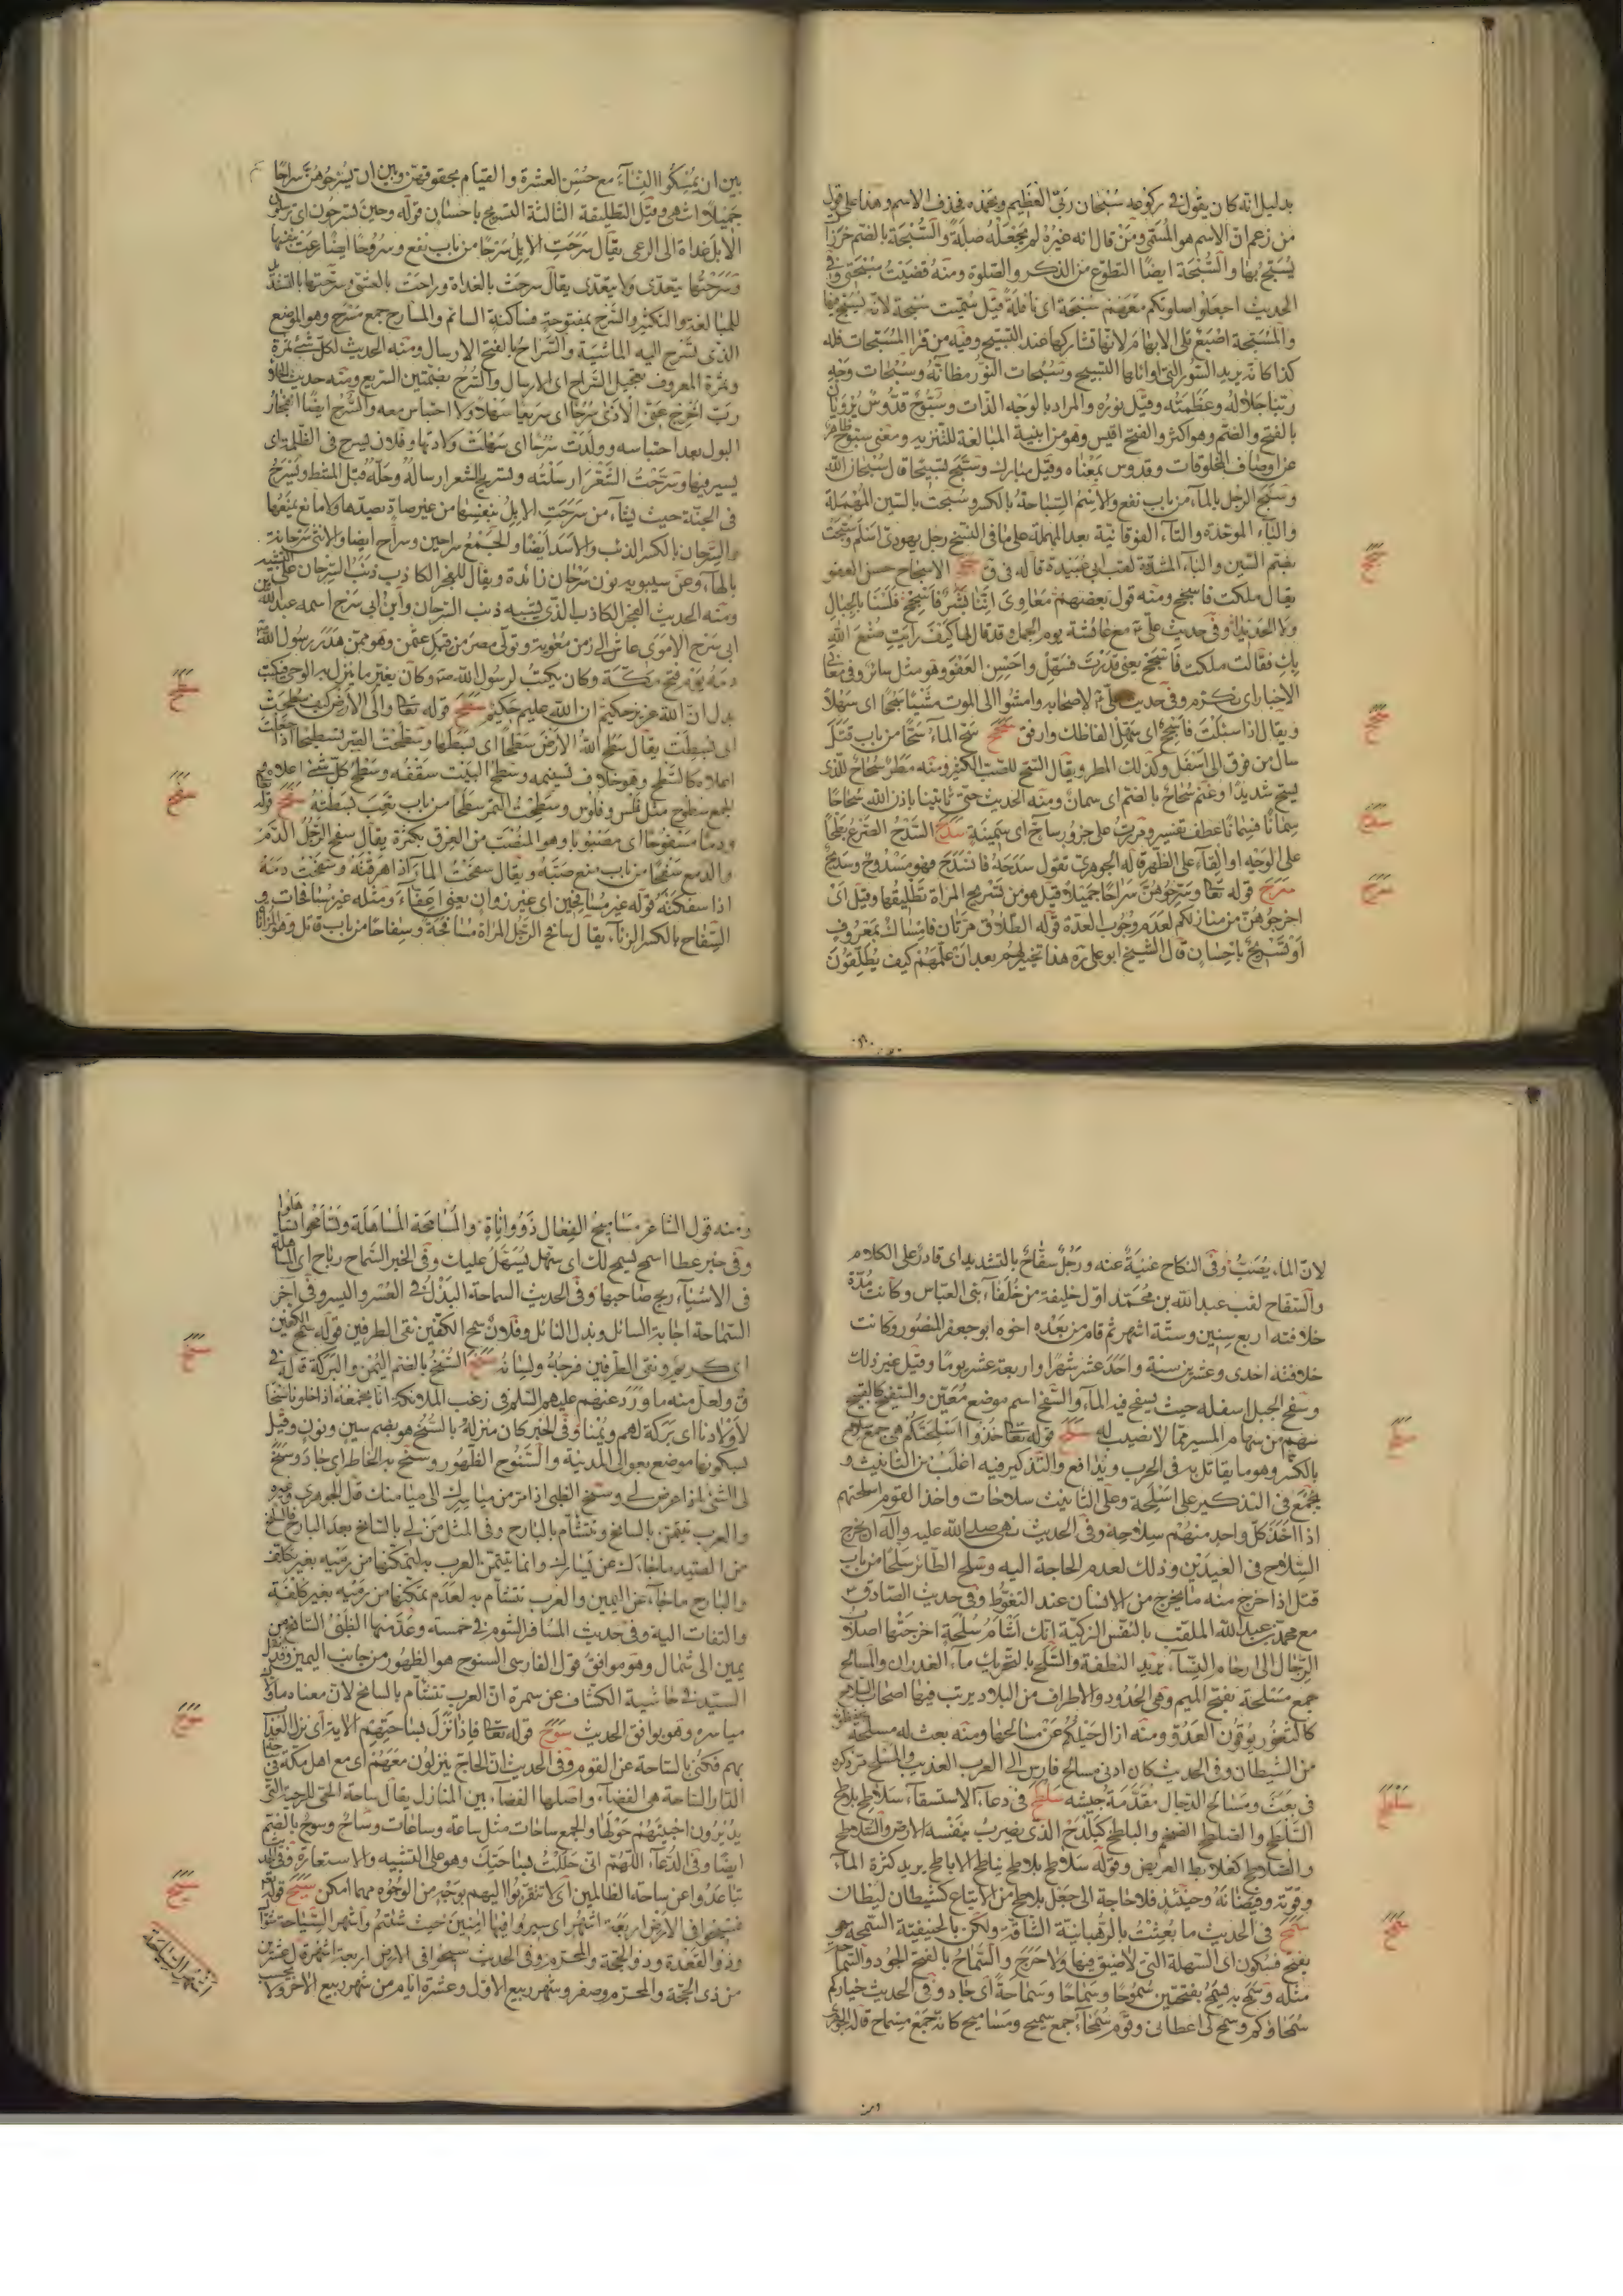 بدليل انه كان يقول في ركوعه سُبْحان ربّي العَظيم وبحمده فحذف الاسم وهذا على قول
من زعم ان الاسم هو المسمّى ومَنْ قال انه غيره لم يجعله صلةً والسُّبْحَة بالضم خَرَزٌ
يُسَبَّح بها والسُّبْحَة ايضًا التطوّع من الذكر والصّلوة ومنه قضيتُ سُبْحَتي وفي
الحديث اجعلوا صلوتكم معهم سُبْحَة اى نافلةً قيل سُمّيت سُبْحة لانه يُسَبَّح فيها
والمُسَبِّحة اصْبَعٌ تلى الابهام لانها تشاركها عند التسبيح وفيه من قرا المُسَبِّحات فله
كذا كانه يريد السّور التى اوائلها التسبيح وسُبُحات النّور مظانّه وسُبُحات وَجْهِ
ربّنا جَلالُه وعَظَمَتُه وقيل نوره والمراد بالوجه الذات وسُبّوحٌ قدّوسٌ يُرْوَيان
بالفتح والضمّ وهو اكثر والفتح اقيس وهو من ابنية المبالغة للتنزيه ومعنى سبّوح طاهر
عن اوصاف المخلوقات وقدوس بمَعْناه وقيل مبارك وسَبَّح تسبيحًا قال سُبْحان الله
وسَبَحَ الرّجل بالماء من باب نفع والاسم السِّباحة بالكسر وسُبحت بالسّين المُهْمَلة
والباء الموحّدة والتّاء الفوقانية بعد المهملة على ما في النّسخ رجل يهودىّ اسلم وسُبّحت
بضم السّين والباء المشدّدة لقب ابى عُبَيدة قاله في ق سجح الاسجاح حسن العفو
يقال ملكت فاسجح ومنه قول بعضهم مُعَاوِىَ انّنا بَشَرٌ فَاَسْجِحْ فَلَسْنا بالجبال
ولا الحديدا وفي حديث علىّ ع مع عائشة يوم الجمل قد قال لها كيفَ رايتِ صُنْعَ الله
بكِ فقالت ملكت فَاَسْجِح يعنى قدَرْتَ فسَهِّلْ واحسِنِ العَفوَ وهو مثل سائر وفي بعض
الاخبار اى تكرّم وفي حديث علىّ ع لاصحابه وامشُوا الى الموت مَشْيًا سُجُحًا اى سَهْلاً
ويقال اذا سئلْتَ فَاَسْجِحْ اى سَهِّل الفاظك وارفق سحح سَحّ الماءُ سَحًّا من باب قتَلَ
سال من فوق الى اسْفَل وكذلك المطر ويقال السّحّ للصّبّ الكثير ومنه مَطَرٌ سَحّاحٌ للّذى
يسحّ شديدًا وغَنَم سُحّاحٌ بالضم اى سمانٌ ومنه الحديث حتّى تأتينا باذن الله سُحّاحًا
سِمَانًا فسِمانًا عطف تفسير ومررتُ على جزور سَاحٍّ اى سَمينة سدح السَّدْحُ الصَّرْعُ بَطْحًا
على الوَجْهِ او القاءً على الظّهر قاله الجوهرى تقول سَدَحَهُ فانْسَدَحَ فهو مَسْدُوحٌ وسَديحٌ
سرح قوله تعا وسَرِّحُوهُنَّ سَراحًا جَميلًا قيل هو من تسريح المراة تطليقها وقيل اىْ
اخرجُوهُنّ من منازلكم لعدم وجُوب العدة قوله الطّلاق مرّتان فامْسَاكٌ بمَعْرُوفٍ
اوْ تسْريحٌ باحْسَانٍ قال الشيخ ابو علىّ ره هذا تخيير لهم بعد انْ علّمَهُمْ كيف يُطلّقونَ
سبح
سحح
سدح
سرح
بين ان يمُسِكُوا النّساءَ مع حُسْنِ العشرة والقيام بحقوقهنّ وبين ان يُسَرّحُوهُنَّ سَراحًا
جَميلًا انتهى وقيل التطليقة الثالثة التّسريح باحسان قوله وحينَ تسرحُون اى ترسلون
الابل غداة الى الرعى يقال سَرَحَتِ الابلُ سَرْحًا من باب نفع وسُرُوحًا ايضًا رعَتْ بنفسها
وسَرَحْتُها يتعدّى ولا يتعدّى يقال سرحَتْ بالغداة وراحَتْ بالعشىّ وسرّحتها بالتشديد
للمبالغة والتكثير والسَّرْح بمفتوحة فساكنة السائم والمسارح جمع مَسْرَحٍ وهو الموضع
الذى تَسْرَح اليه الماشيَة والسَّراحُ بالفتح الارسال ومنه الحديث لكلّ شئ ثمرة
وثمرَة المعروف تعجيل السَّراح اى الارسال والسُّرُح بضمّتين السّريع ومنه حديث الخلاء
ربّ اَخْرِج عنّى الاذى سُرُحًا اى سريعًا سَهْلًا ولا احتباس معه والسُّرُح ايضًا انفجار
البول بعد احتباسه وولَدَتْ سُرُحًا اى سَهُلَتْ ولادتها وفلان يسرح فى الظّلمة اى
يسير فيها وسَرَّحْتُ الشّعْرَ ارسَلْتُه وتسريح الشعر ارساله وحلّه قبل المشط ويَسْرَحُ
فى الجنّة حيث يشاء من سَرَحَتِ الابلُ بنفسها من غير صادّ يصدّها ولا مانع يمْنَعُها
والسِّرحان بالكسر الذئب والاسَد ايضًا والجَمْع سراحين وسراح ايضا والانثى سِرْحانة
بالهاء وعن سيبويه نون سَرْحان زائدة ويقال للفجر الكاذب ذنَبُ السّرحان على التشبيه
ومنه الحديث الفجر الكاذب الذى يشبه ذنب السّرحان وابن ابى سَرْح اسمه عبد الله بن
ابى سَرح الاموى عاش الى زمن مُعٰوية وتولّى مصر من قبل عثمٰن وهو ممّن هَدَرَ رسُول الله
دمَهُ يوم فتح مكّة وكان يكتبُ لرسُول الله ص وكان يغيّر ما ينزل به الوحى فكتب
بدل انّ الله عزيز حكيم ان الله عليم حكيم سطح قوله تعا والى الأرض كيف سُطِحَتْ
اى بُسِطَتْ يقال سَطح اللهُ الأرْضَ سَطْحًا اى بسَطها وسطَّحْتُ القبر تسطيحًا اذا جعلت
اعلاه كالسّطح وهو خلاف تسنيمه وسَطْح البَيْت سَقْفُه وسَطْح كلّ شئ اعلاه
لجمع سُطوح مثل فَلْس وفلُوس وسطحْتُ التمر سَطْحًا من باب نفعَ بسَطْتُهُ سفح قوله
ودمًا مَسْفُوحًا اى مَصْبُوبا وهو المُنْصَبّ من العرق بكثرة يقال سفح الرَّجُلُ الدَّمَ
والدمع سَفْحًا من باب منع صَبّه ويقال سفحْتُ الماءَ اذا هَرَقْتَه وسفَحْتُ دمَه
اذا سفكتَه قوله غير مُسَافحين اى غير زَوانٍ يعنى اعِفّاءَ ومثله غير مُسَافِحَات و
السِّفاح بالكسر الزناء يقال سَافَحَ الرَّجُل المراة مُسَافحَةً وسِفاحًا من باب قاتل وهو الزّنا
سطح
سفح
لانّ الماء يُصَبّ وفي النكاح غنيَةٌ عنه ورَجُلٌ سفّاحٌ بالتشديد اى قادر على الكلام
والسّفاح لقب عبد الله بن محمّد اوّل خليفة من خُلَفاء بنى العبّاس وكانت مُدّة
خلافته اربع سِنين وستّة اشهر ثم قام من بَعْده اخوه ابو جعفر المنصُور وكانت
خلافته احدى وعشرين سنة واحَدَ عشر شهرًا واربعة عشر يومًا وقيل غير ذلك
وسفْح الجبل اسفله حيث يسفح فيه الماء والسّفح اسم موضع مُعَيّن والسّفيح كالفسيح
سهم من سهام المسير ممّا لا نصيب له سلح قوله تعا خُذُوا اسْلِحَتَكُم هى جمع سلاح
بالكسر وهو ما يقاتل به فى الحرب ويدافع والتّذكير فيه اغلب من التأنيث و
يجْمَع فى التذكير على اسْلِحة وعلى التأنيث سلاحات واخذ القوم اسلحتهم
اذا اَخَذَ كلّ واحد منهُمْ سِلاحَه وفى الحديث نهى صلى الله عليه وآله ان يخرج
السِّلاح فى العيدَين وذلك لعدم الحاجة اليه وسَلح الطّائر سَلْحًا من باب
قتل اذا خرج منه ما يخرج من الانسان عند التّغوّط وفى حديث الصّادق ع
مع محمّد بن عبد الله الملقّب بالنّفس الزكيّة انّك اَشْأَمُ سُلْحةٍ اخرجَتْها اصلاب
الرّجال الى ارحام النّساء يريد النطفة والسّلح بالتحريك ماء الغدران والمسالح
جمع مَسْلحة بفتح الميم وهى الحُدُود والاطراف من البلاد يرتب فيها اصحاب السّلاح
كالثغور يُوقون العَدُوّ ومنه ازالَ خَيْلَكُم عَنْ مسَالحها ومنه بعث له مسلحة يحفظونه
من الشيطان وفى الحديث كان ادنى مسالح فارس الى العرب العذيب والمسلح مر ذكره
فى بَعَثَ ومَسَالح الدّجال مُقدّمَة جيشه سلطح فى دعاء الاستسقاء سلاطح بلاطح
السَّلطح والصّلطح الضّخم والباطح كبَلْدَحْ الذى يضرب بنفسه الارض والسّلاطح
والصّلاطح كعُلابط العريض وقوله سلاطح بلاطح يناطح الاباطح يريد كثرة الماء
وقوّته وفيضانَهُ وحينئذٍ فلا حاجة الى جَعْل بلاطح من الاتباع كشيطان ليطان
سمح فى الحديث ما بُعِثْتُ بالرّهبانيّة الشّاقّة ولكن بالحنيفيّة السَّمْحة هو
بفتح فسكون اى السّهلة التى لا ضيق فيها ولا حَرَج والسَّماحُ بالفتح الجود والسّماحة
مثله وسَمَحَ به يسمح بفتحتين سُمُوحًا وسَمَاحًا وسَمَاحَةً اى جَاد وفى الحديث خياركم
سُمَحاؤكم وسمح لى اعطانى وقوم سُمَحَاءُ جمع سميح ومسَاميح كانه جَمْع مِسْماح قاله الجوهرى
سلح
سلطح
سمح
ومنه قول الشاعر مسَاميحُ الفِعَال ذَوُو اَنَاةٍ والمُسَامحة المُسَاهَلَة وتسَامَحُوا تساهلوا
وفى خبر عطا اسمح يسمح لك اى سَهِّل يُسَهَّلْ عليك وفى الخبر السَّماح رباح اى المساهلة
فى الاشياء يربح صاحبها وفى الحديث السماحة البَذْل فى العُسْر واليسر وفى آخر
السّماحة اجابة السائل وبذل النائل وفلانٌ سمح الكفّين نقىّ الطرفين قوله سمح الكفين
اى كريم ونقى الطرفين فرجهُ ولسانُه سنح السُّنْح بالضم اليُمْن والبَركة قاله فى
ق ولعل منه ما وَرَدَ عنهُم عليهم السّلام فى زغب الملائكة انا نجمعه اذا خلونا سنحًا
لاوْلادنا اى بَرَكة لهم ويُمْنًا وفى الخبر كان منزله بالسُّنْح هو بضم سين ونون وقيل
بسكونها موضع بعوالى المدينة والسُّنُوح الظّهُور وسنح به الخاطر اى جَادَ وسَنَحَ
لى الشئ اذا عرض لى وسنَح الظبى اذا مرّ من مياسرك الى ميامنك قال الجوهرى وغيره
والعرب تتيمّن بالسانح وتتشاءم بالبَارح وفى المثل مَنْ لى بالسّانح بَعد البارح والسّانح
من الصّيد ماجاءك عن يسَارك وانما يتيمّن العرب به لتمكّنها من رَمْيه بغير تكلّف
والبَارح ماجَاء عن اليمين والعرب تتشاءم به لعَدَم تمكّنها من رَمْيه بغير كُلْفة
والتفات اليه وفى حديث المُسَافر الشوم فى خمسة وعُدّ منها الظّبْىُ السّانح من
يمين الى شمال وهو موافق قول الفارسى السنوح هو الظّهور من جانب اليمين ونقل
السيّد فى حاشية الكشّاف عن سمرة انّ العرب تتشاءم بالسانح لانّ معناه ماولاك
مياسره وهو يوافق الحديث سوح قوله تعا فاِذَا نَزَلَ بسَاحَتِهِم الآية اى نزل العذاب
بهم فكنّى بالسّاحة عن القوم وفى الحديث انّ الحاجّ ينزلون مَعَهُمْ اى مع اهل مكّة فى ساحة
الدار السّاحة هى الفضاء واصلها الفضاء بين المنازل يقال ساحة الحىّ للرحبة التى
يُديرون اخبيتَهُمْ حَوْلَها والجمع سَاحات مثل ساعة وساعات وساحٌ وسوح بالضم
ايضًا وفى الدّعاء اللّهُمّ انّى حَلَلْتُ بسَاحَتِك وهو على التشبيه والاستعارة وفى الحديث
تبَاعَدُوا عن ساحة الظّالمين اى لا تتقرّبُوا اليهم بوَجْهٍ من الوُجُوه مهما امكن سيح قوله
فسيحُوا فى الأرْض اربَعَة اشهُر اى سيروا فيها آمِنين حيث شئتُمْ واشهُر السّياحة شوّال
وذو القَعْدة وذو الحجّة والمحرّم وفى الحديث سيحوا فى الارض اربعة اشهر قال عشرين
من ذى الحجّة والمحرّم وصفر وشهر ربيع الاوّل وعشرة ايّام من شهر ربيع الآخر ولا
سنح
سوح
سيح
اشهر السّياحة